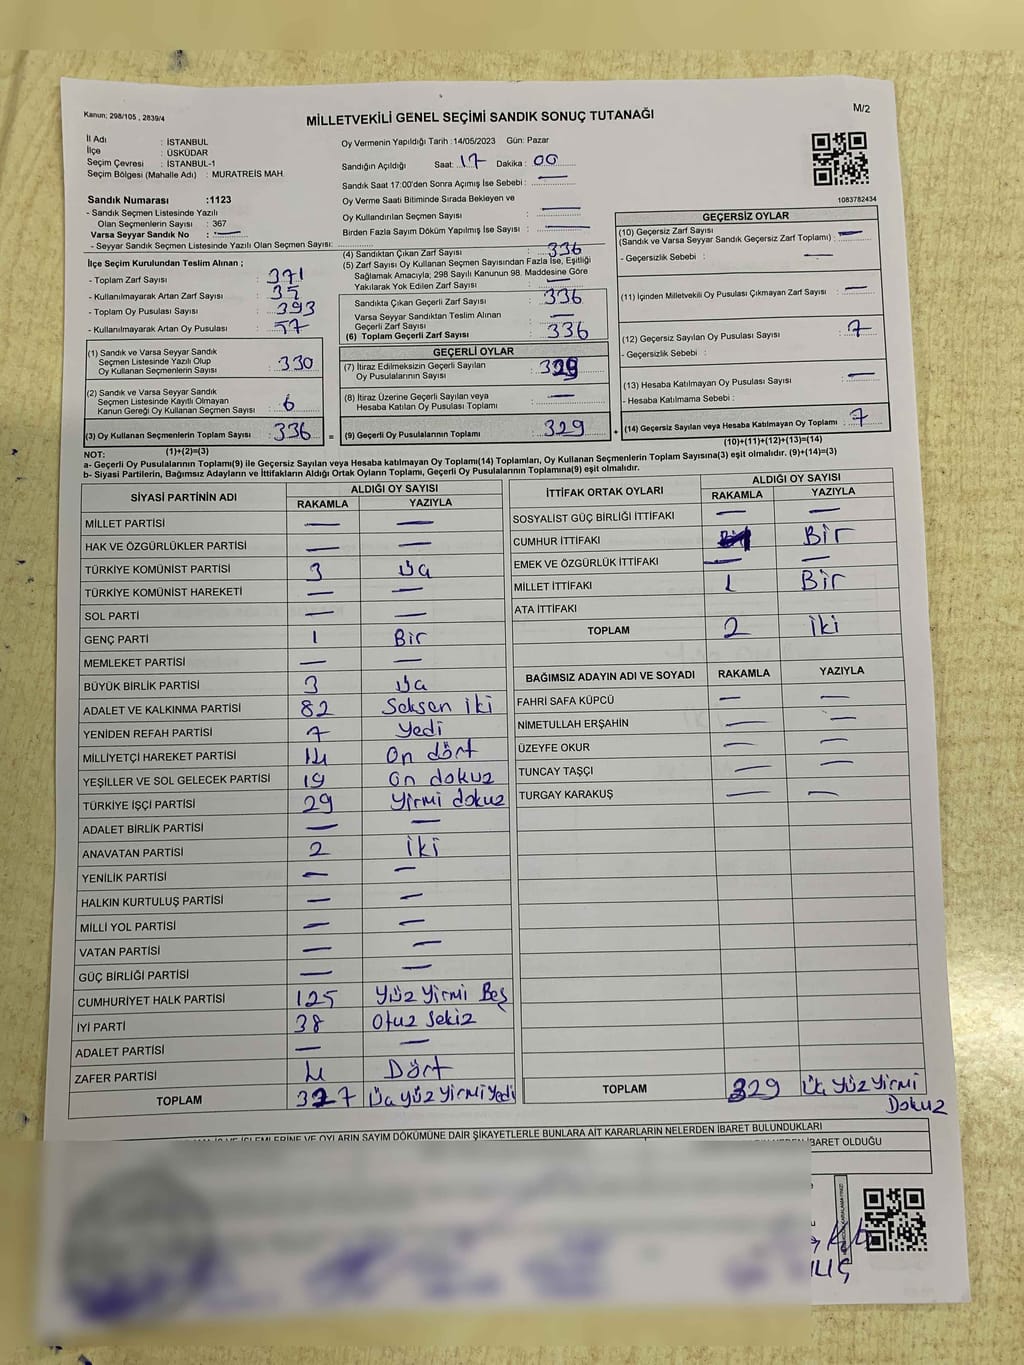 Kanun: 298/105 , 2839/4
MİLLETVEKİLİ GENEL SEÇİMİ SANDIK SONUÇ TUTANAĞI
M/2
İl Adı : İSTANBUL
İlçe : ÜSKÜDAR
Seçim Çevresi : İSTANBUL-1
Seçim Bölgesi (Mahalle Adı) : MURATREİS MAH.
Sandık Numarası :1123
- Sandık Seçmen Listesinde Yazılı
Olan Seçmenlerin Sayısı : 367
Varsa Seyyar Sandık No : —
- Seyyar Sandık Seçmen Listesinde Yazılı Olan Seçmen Sayısı:
Oy Vermenin Yapıldığı Tarih :14/05/2023 Gün: Pazar
Sandığın Açıldığı Saat: 17 Dakika : 00
Sandık Saat 17:00'den Sonra Açımış İse Sebebi : —
Oy Verme Saati Bitiminde Sırada Bekleyen ve
Oy Kullandırılan Seçmen Sayısı : —
Birden Fazla Sayım Döküm Yapılmış İse Sayısı : —
1083782434
İlçe Seçim Kurulundan Teslim Alınan ;
- Toplam Zarf Sayısı : 371
- Kullanılmayarak Artan Zarf Sayısı : 35
- Toplam Oy Pusulası Sayısı : 393
- Kullanılmayarak Artan Oy Pusulası : 57
(1) Sandık ve Varsa Seyyar Sandık
Seçmen Listesinde Yazılı Olup
Oy Kullanan Seçmenlerin Sayısı : 330
(2) Sandık ve Varsa Seyyar Sandık
Seçmen Listesinde Kayıtlı Olmayan
Kanun Gereği Oy Kullanan Seçmen Sayısı : 6
(3) Oy Kullanan Seçmenlerin Toplam Sayısı : 336
(1)+(2)=(3)
(4) Sandıktan Çıkan Zarf Sayısı : 336
(5) Zarf Sayısı Oy Kullanan Seçmen Sayısından Fazla İse, Eşitliği
Sağlamak Amacıyla; 298 Sayılı Kanunun 98. Maddesine Göre
Yakılarak Yok Edilen Zarf Sayısı : —
Sandıkta Çıkan Geçerli Zarf Sayısı : 336
Varsa Seyyar Sandıktan Teslim Alınan
Geçerli Zarf Sayısı : —
(6) Toplam Geçerli Zarf Sayısı : 336
GEÇERLİ OYLAR
(7) İtiraz Edilmeksizin Geçerli Sayılan
Oy Pusulalarının Sayısı : 329
(8) İtiraz Üzerine Geçerli Sayılan veya
Hesaba Katılan Oy Pusulaları Toplamı : —
= (9) Geçerli Oy Pusulalarının Toplamı : 329 +
GEÇERSİZ OYLAR
(10) Geçersiz Zarf Sayısı
(Sandık ve Varsa Seyyar Sandık Geçersiz Zarf Toplamı) : —
- Geçersizlik Sebebi : —
(11) İçinden Milletvekili Oy Pusulası Çıkmayan Zarf Sayısı : —
(12) Geçersiz Sayılan Oy Pusulası Sayısı : 7
- Geçersizlik Sebebi :
(13) Hesaba Katılmayan Oy Pusulası Sayısı : —
- Hesaba Katılmama Sebebi :
(14) Geçersiz Sayılan veya Hesaba Katılmayan Oy Toplamı : 7
(10)+(11)+(12)+(13)=(14)
NOT:
a- Geçerli Oy Pusulasının Toplamı(9) ile Geçersiz Sayılan veya Hesaba katılmayan Oy Toplamı(14) Toplamları, Oy Kullanan Seçmenlerin Toplam Sayısına(3) eşit olmalıdır. (9)+(14)=(3)
b- Siyasi Partilerin, Bağımsız Adayların ve İttifakların Aldığı Ortak Oyların Toplamı, Geçerli Oy Pusulalarının Toplamına(9) eşit olmalıdır.
SİYASİ PARTİNİN ADI ALDIĞI OY SAYISI
RAKAMLA YAZIYLA
MİLLET PARTİSİ — —
HAK VE ÖZGÜRLÜKLER PARTİSİ — —
TÜRKİYE KOMÜNİST PARTİSİ 3 Üç
TÜRKİYE KOMÜNİST HAREKETİ — —
SOL PARTİ — —
GENÇ PARTİ 1 Bir
MEMLEKET PARTİSİ — —
BÜYÜK BİRLİK PARTİSİ 3 Üç
ADALET VE KALKINMA PARTİSİ 82 Seksen iki
YENİDEN REFAH PARTİSİ 7 Yedi
MİLLİYETÇİ HAREKET PARTİSİ 14 On dört
YEŞİLLER VE SOL GELECEK PARTİSİ 19 On dokuz
TÜRKİYE İŞÇİ PARTİSİ 29 Yirmi dokuz
ADALET BİRLİK PARTİSİ — —
ANAVATAN PARTİSİ 2 İki
YENİLİK PARTİSİ — —
HALKIN KURTULUŞ PARTİSİ — —
MİLLİ YOL PARTİSİ — —
VATAN PARTİSİ — —
GÜÇ BİRLİĞİ PARTİSİ — —
CUMHURİYET HALK PARTİSİ 125 Yüz Yirmi Beş
İYİ PARTİ 38 Otuz Sekiz
ADALET PARTİSİ — —
ZAFER PARTİSİ 4 Dört
TOPLAM 327 Üç Yüz Yirmi Yedi
İTTİFAK ORTAK OYLARI ALDIĞI OY SAYISI
RAKAMLA YAZIYLA
SOSYALIST GÜÇ BİRLİĞİ İTTİFAKI — —
CUMHUR İTTİFAKI Bir
EMEK VE ÖZGÜRLÜK İTTİFAKI — —
MİLLET İTTİFAKI 1 Bir
ATA İTTİFAKI
TOPLAM 2 İki
BAĞIMSIZ ADAYIN ADI VE SOYADI RAKAMLA YAZIYLA
FAHRİ SAFA KÜPCÜ — —
NİMETULLAH ERŞAHİN — —
ÜZEYFE OKUR — —
TUNCAY TAŞÇI — —
TURGAY KARAKUŞ — —
TOPLAM 329 Üç Yüz Yirmi
Dokuz
İŞLEMLERİNE VE OYLARIN SAYIM DÖKÜMÜNE DAİR ŞİKAYETLERLE BUNLARA AİT KARARLARIN NELERDEN İBARET BULUNDUKLARI
İBARET OLDUĞU